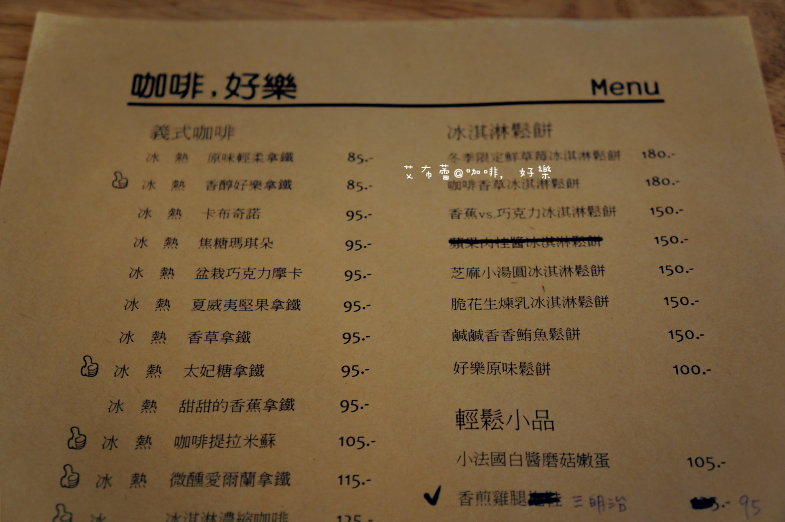 咖啡，好樂
Menu
義式咖啡
冰 熱 原味輕柔拿鐵 85.-
冰 熱 香醇好樂拿鐵 85.-
冰 熱 卡布奇諾 95.-
冰 熱 焦糖瑪琪朵 95.-
冰 熱 盆栽巧克力摩卡 95.-
冰 熱 夏威夷堅果拿鐵 95.-
冰 熱 香草拿鐵 95.-
冰 熱 太妃糖拿鐵 95.-
冰 熱 甜甜的香蕉拿鐵 95.-
冰 熱 咖啡提拉米蘇 105.-
冰 熱 微醺愛爾蘭拿鐵 115.-
冰 冰淇淋濃縮咖啡 125.-
冰淇淋鬆餅
冬季限定鮮草莓冰淇淋鬆餅 180.-
艾布蕾@咖啡, 好樂
咖啡香草冰淇淋鬆餅 180.-
香蕉vs.巧克力冰淇淋鬆餅 150.-
蘋果肉桂醬冰淇淋鬆餅 150.-
芝麻小湯圓冰淇淋鬆餅 150.-
脆花生煉乳冰淇淋鬆餅 150.-
鹹鹹香香鮪魚鬆餅 150.-
好樂原味鬆餅 100.-
輕鬆小品
小法國白醬磨菇嫩蛋 105.-
香煎雞腿 三明治 95